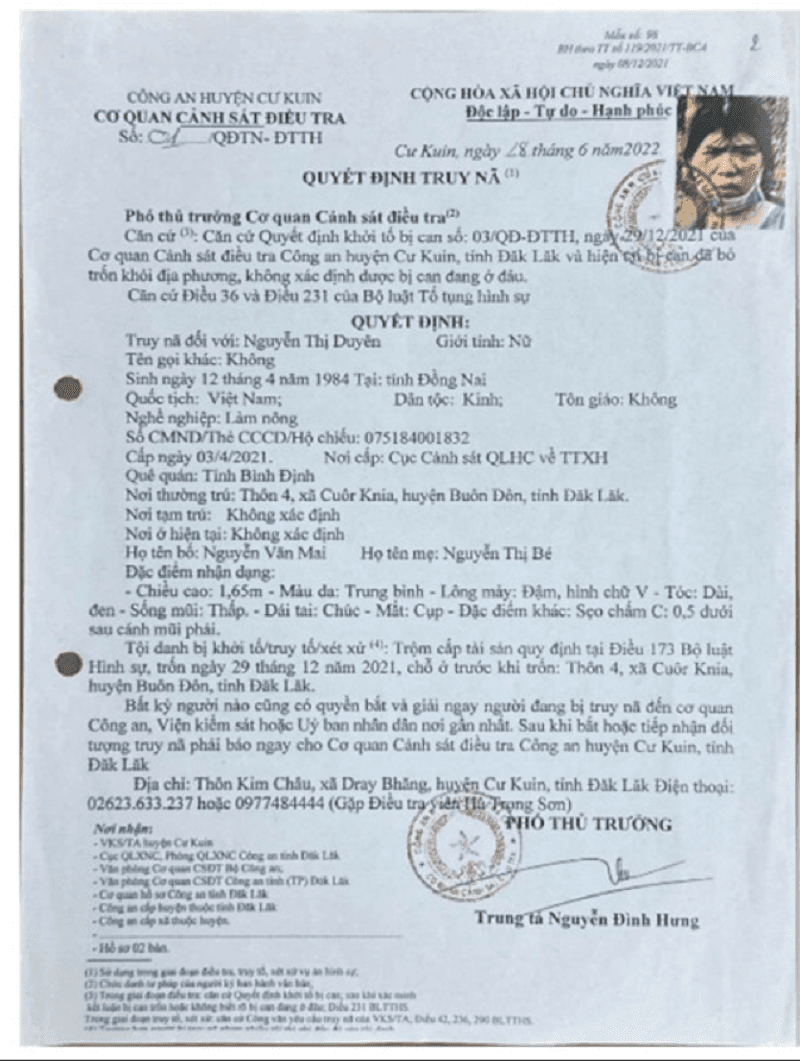 Mẫu số: 98
BH theo TT số 119/2021/TT-BCA
ngày 08/12/2021
2
CÔNG AN HUYỆN CƯ KUIN
CƠ QUAN CẢNH SÁT ĐIỀU TRA
Số: /QĐTN- ĐTTH
CỘNG HÒA XÃ HỘI CHỦ NGHĨA VIỆT NAM
Độc lập - Tự do - Hạnh phúc
Cư Kuin, ngày 28 tháng 6 năm 2022
QUYẾT ĐỊNH TRUY NÃ (1)
Phó thủ trưởng Cơ quan Cảnh sát điều tra(2)
Căn cứ (3): Căn cứ Quyết định khởi tố bị can số: 03/QĐ-ĐTTH, ngày 29/12/2021 của
Cơ quan Cảnh sát điều tra Công an huyện Cư Kuin, tỉnh Đăk Lăk và hiện tại bị can đã bỏ
trốn khỏi địa phương, không xác định được bị can đang ở đâu.
Căn cứ Điều 36 và Điều 231 của Bộ luật Tố tụng hình sự
QUYẾT ĐỊNH:
Truy nã đối với: Nguyễn Thị Duyên Giới tính: Nữ
Tên gọi khác: Không
Sinh ngày 12 tháng 4 năm 1984 Tại: tỉnh Đồng Nai
Quốc tịch: Việt Nam; Dân tộc: Kinh; Tôn giáo: Không
Nghề nghiệp: Làm nông
Số CMND/Thẻ CCCD/Hộ chiếu: 075184001832
Cấp ngày 03/4/2021. Nơi cấp: Cục Cảnh sát QLHC về TTXH
Quê quán: Tỉnh Bình Định
Nơi thường trú: Thôn 4, xã Cuôr Knia, huyện Buôn Đôn, tỉnh Đăk Lăk.
Nơi tạm trú: Không xác định
Nơi ở hiện tại: Không xác định
Họ tên bố: Nguyễn Văn Mai Họ tên mẹ: Nguyễn Thị Bé
Đặc điểm nhận dạng:
- Chiều cao: 1,65m - Màu da: Trung bình - Lông mày: Đậm, hình chữ V - Tóc: Dài,
đen - Sống mũi: Thấp. - Dái tai: Chúc - Mắt: Cụp - Đặc điểm khác: Sẹo chấm C: 0,5 dưới
sau cánh mũi phải.
Tội danh bị khởi tố/truy tố/xét xử (4): Trộm cắp tài sản quy định tại Điều 173 Bộ luật
Hình sự, trốn ngày 29 tháng 12 năm 2021, chỗ ở trước khi trốn: Thôn 4, xã Cuôr Knia,
huyện Buôn Đôn, tỉnh Đăk Lăk.
Bất kỳ người nào cũng có quyền bắt và giải ngay người đang bị truy nã đến cơ quan
Công an, Viện kiểm sát hoặc Uỷ ban nhân dân nơi gần nhất. Sau khi bắt hoặc tiếp nhận đối
tượng truy nã phải báo ngay cho Cơ quan Cảnh sát điều tra Công an huyện Cư Kuin, tỉnh
Đăk Lăk
Địa chỉ: Thôn Kim Châu, xã Dray Bhăng, huyện Cư Kuin, tỉnh Đăk Lăk Điện thoại:
02623.633.237 hoặc 0977484444 (Gặp Điều tra viên Hà Trọng Sơn)
Nơi nhận:
- VKS/TA huyện Cư Kuin
- Cục QLXNC, Phòng QLXNC Công an tỉnh Đăk Lăk
- Văn phòng Cơ quan CSĐT Bộ Công an;
- Văn phòng Cơ quan CSĐT Công an tỉnh (TP) Đăk Lăk
- Cơ quan hồ sơ Công an tỉnh Đăk Lăk
- Công an cấp huyện thuộc tỉnh Đăk Lăk
- Công an cấp xã thuộc huyện.
- Hồ sơ 02 bản.
PHÓ THỦ TRƯỞNG
Trung tá Nguyễn Đình Hưng
(1) Sử dụng trong giai đoạn điều tra, truy tố, xét xử vụ án hình sự;
(2) Chức danh tư pháp của người ký ban hành văn bản;
(3) Trong giai đoạn điều tra: căn cứ Quyết định khởi tố bị can; sau khi xác minh
kết luận bị can trốn hoặc không biết rõ bị can đang ở đâu; Điều 231 BLTTHS.
Trong giai đoạn truy tố, xét xử: căn cứ Công văn yêu cầu truy nã của VKS/TA, Điều 42, 236, 290 BLTTHS.